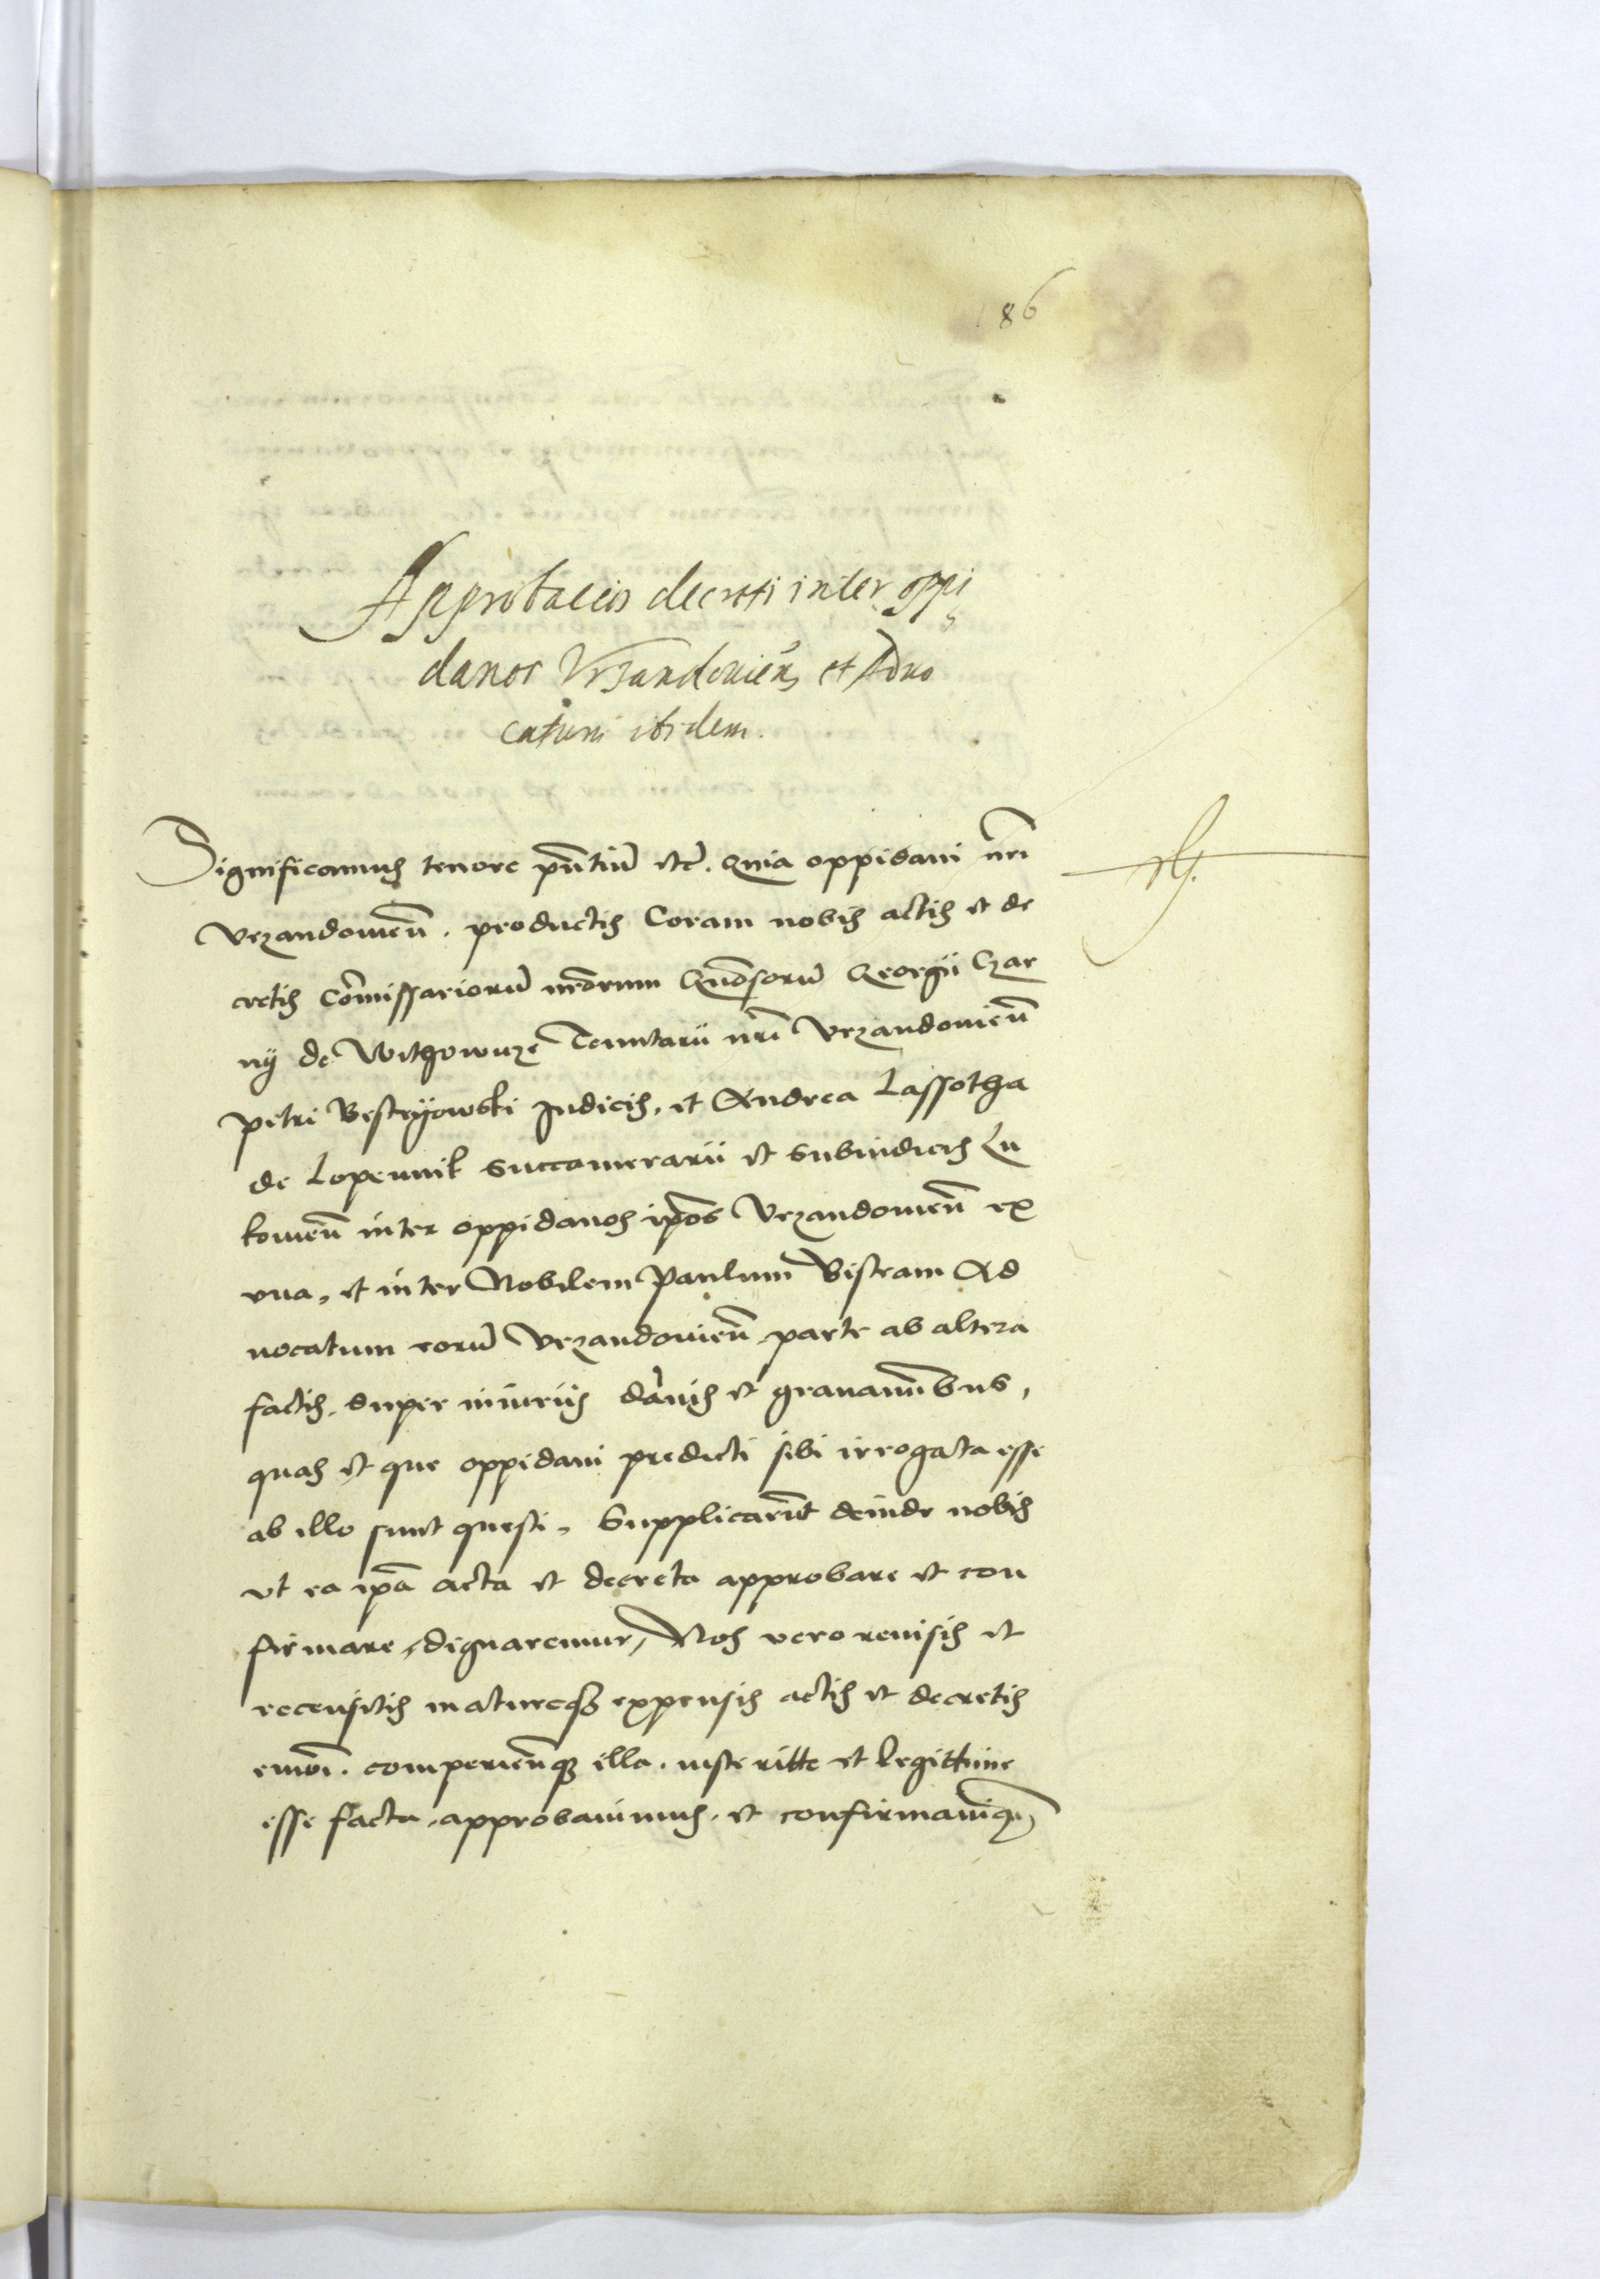 186
Approbacio decreti inter oppi
danos Vrzandouien̄ et Aduo
catum ibidem.
Significamus tenore pn̄tiū etc̄. Quia oppidani nr̄i
Vrzandouien̄. productis Coram nobis actis et de
cretis Com̄issariorū nr̄orum Gn̄osorū Georgii Czar
ny de Withowicze Tenutarii nr̄i Vrzandouien̄
Petri Bistrijowski Iudicis, et Andrea Lassotha
de Lopennik Succamerarii et Subiudicis Lu
kouien̄ inter oppidanos ip̄os Vrzandouien̄ ex
vna, et inter Nobilem Paulum Bistram Ad
uocatum eorū Vrzandouien̄ parte ab altera
factis, super iniuriis dam̄is et grauaminibus,
quas et que oppidani predicti sibi irrogata esse
ab illo sunt questi, Supplicarūt deinde nobis
vt ea ip̄a acta et decreta approbare et con
firmare dignaremur, Nos vero reuisis et
recensitis matureqꝫ expensis actis et decretis
eiusm̄oi. comperien̄qꝫ illa. iuste ritte et legittime
esse facta, approbauimus. et confirmauimꝰqꝫ